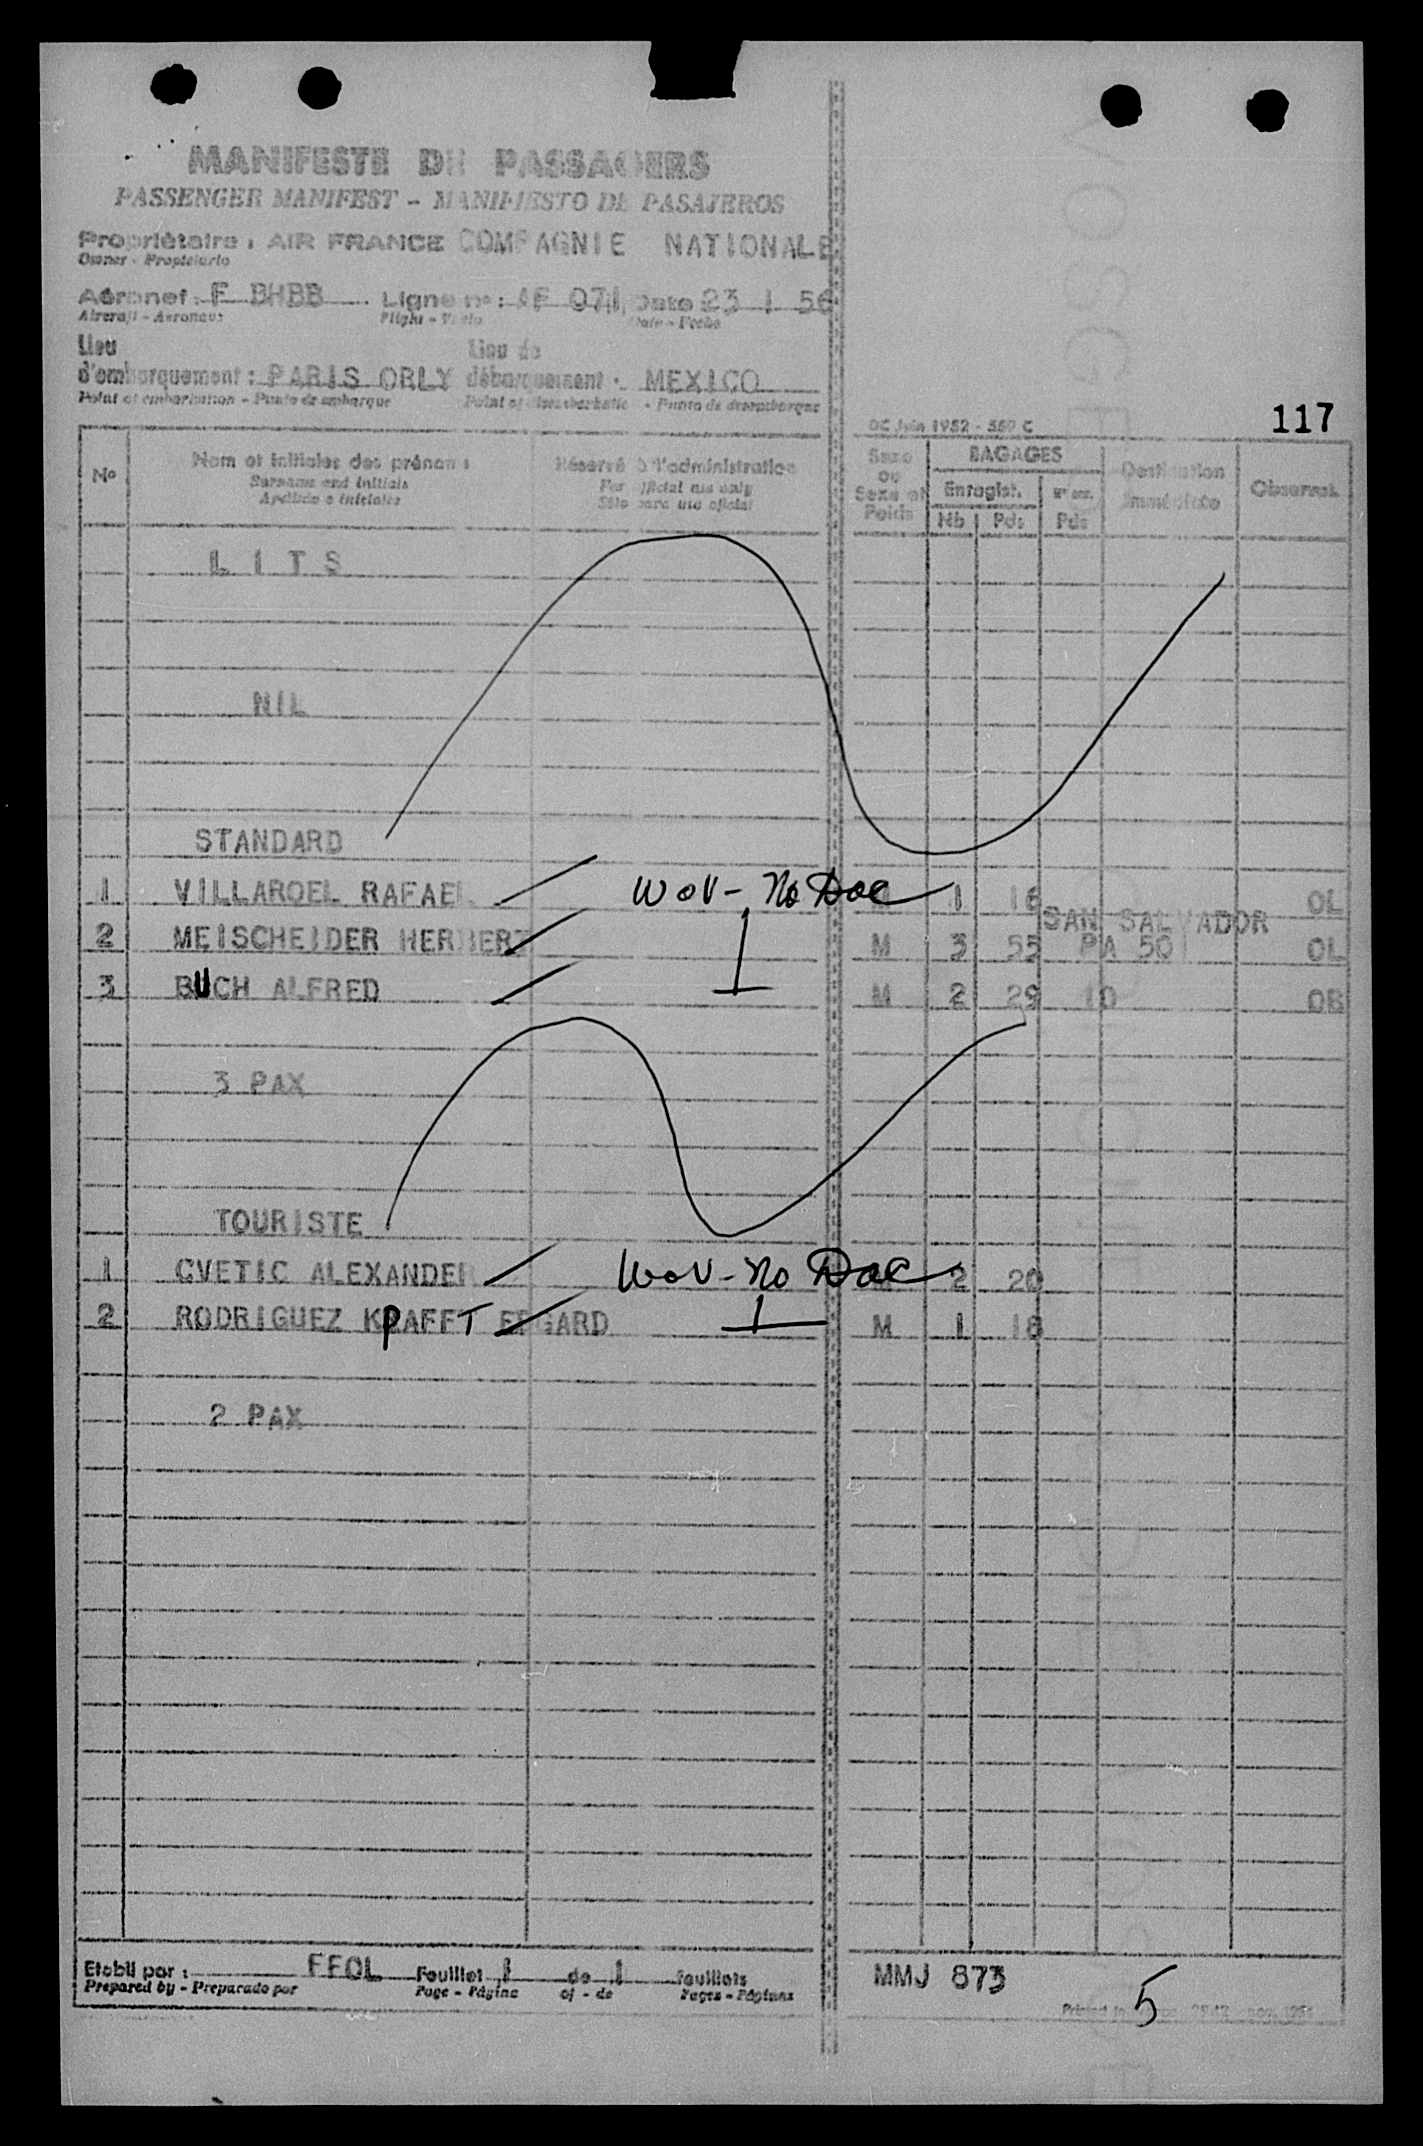 MANIFESTE DE PASSAGERS
PASSENGER MANIFEST - MANIFIESTO DE PASAJEROS
Propriétaire : AIR FRANCE COMPAGNIE NATIONALE
Owner - Propietario
Aéronef : F BHBB Ligne n° : AF 071 Date 23 1 56
Aircraft - Aeronave Flight - Vuelo Date - Fecha
Lieu Lieu de
d'embarquement : PARIS ORLY débarquement : MEXICO
Point of embarkation - Punto de embarque Point of disembarkation - Punto de desembarque
OC Juin 1952 - 559 C 117
N° Nom et initiales des prénoms Réservé à l'administration Sexe ou Sexe et Poids BAGAGES Destination immédiate Observat.
Surname and initials For official use only Enregist. N° enr.
Apellido e iniciales Sólo para uso oficial Nb Pds Pds
LITS
NIL
STANDARD
1 VILLAROEL RAFAEL WOV - No Doc 1 16 OL
SAN SALVADOR
2 MEISCHEIDER HERBERT M 3 55 PA 501 OL
3 BUCH ALFRED M 2 29 10 OB
3 PAX
TOURISTE
1 CVETIC ALEXANDER WOV - No Doc 2 20
2 RODRIGUEZ KPAFFT EDGARD M 1 18
2 PAX
Etabli par : FFOL Feuillet 1 de 1 feuillets MMJ 873
Prepared by - Preparado por Page - Página of - de Pages - Páginas
Printed in 5